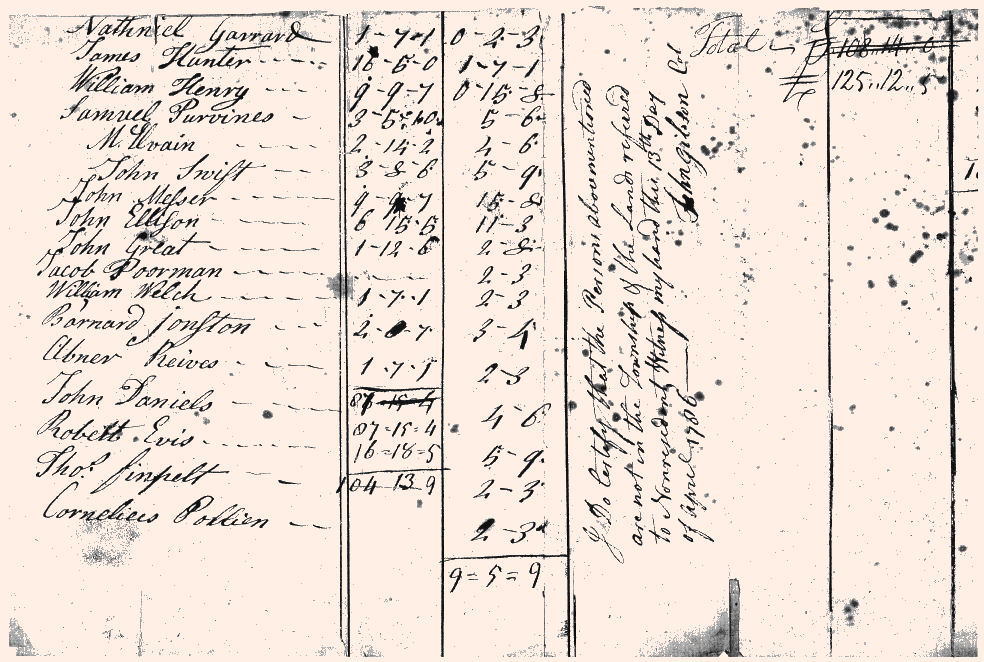 Nathniel Garrard 1-7-1 0-2-3
James Hunter 16-6-0 1-7-1
William Henry 9-9-7 0-15-8
Samuel Purvines 3-5-10 5-6
McIlvain 2-14-2 4-6
John Swift 3-8-6 5-9
John Messer 9-9-7 15-8
John Ellison 6 15-5 11-3
John Great 1-12-6 2-8
Jacob Poorman 2-3
William Welch 1-7-1 2-3
Barnard Jonston 2-0-7 3-4
Abner Reives 1-7-1 2-3
John Daniels 87-15-4 4 6
87-15-4
Robert Evis 16-18-5 5-9
Thos. 104 13 9 2-3
Cornelies 2-3
9=5=9
Total £ 108..14..0
£ 125..12..5
I Do Certify that the Persons abovementioned
are not in the Township & the Land refered
to Nonresident Witness my hand this 13th Day
of April 1786 John Gibson Col